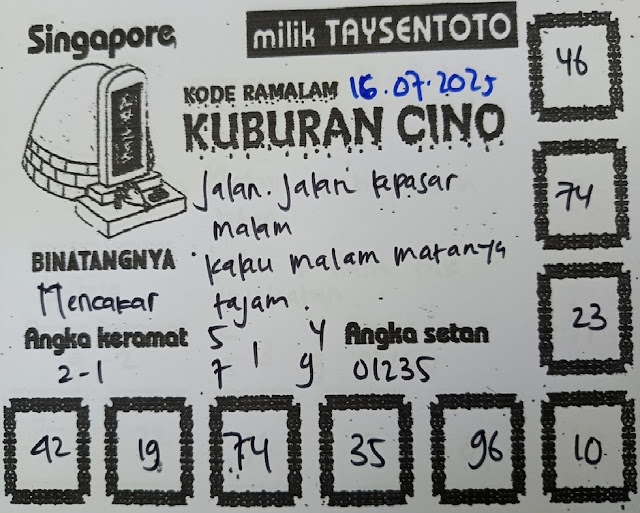 Singapore
milik TAYSENTOTO
46
KODE RAMALAM 16.07.2025
KUBURAN CINO
Jalan. Jalan kepasar
malam
74
BINATANGNYA
kalau malam matanya
Mencakar
tajam.
23
Angka keramat
5 4
Angka setan
2-1
1
7 9
01235
42 19 74 35 96 10